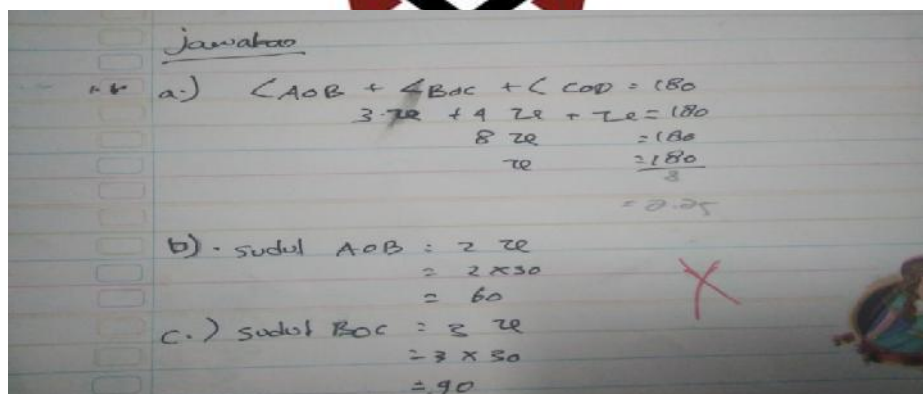 Jawaban
a.) ∠AOB + ∠BOC + ∠COD = 180
3x + 4x + x = 180
8x = 180
x = 180/8
= 2.25
b). sudut AOB = 2x
= 2 x 30
= 60
c.) sudut BOC = 3x
= 3 x 30
= 90